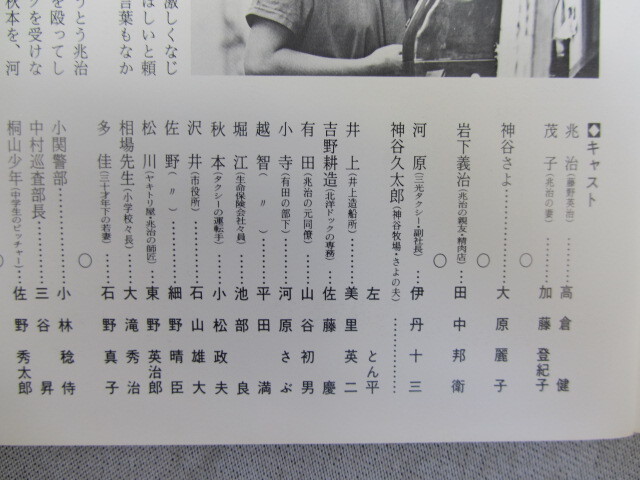 ◆キャスト
兆治(藤野英治)‥‥‥高倉　健
茂子(兆治の妻)‥‥‥加藤登紀子
○
神谷さよ‥‥‥‥‥‥大原麗子
○
岩下義治(兆治の親友・精肉店)‥‥田中邦衛
○
河原(三光タクシー・副社長)‥‥伊丹十三
神谷久太郎(神谷牧場・さよの夫)‥‥‥‥‥
左　とん平
井上(井上造船所)‥‥‥美里英二
吉野耕造(北洋ドックの専務)‥‥佐藤　慶
有田(兆治の元同僚)‥‥‥山谷初男
小寺(有田の部下)‥‥‥河原さぶ
越智(〃)‥‥‥平田　満
堀江(生命保険会社々員)‥‥池部　良
秋本(タクシーの運転手)‥‥小松政夫
沢井(市役所)‥‥‥石山雄大
佐野(〃)‥‥‥細野晴臣
松川(ヤキトリ屋・兆治の師匠)‥‥東野英治郎
相場先生(小学校々長)‥‥‥大滝秀治
多佳(三十才年下の若妻)‥‥石野真子
○
小関警部‥‥‥‥‥小林稔侍
中村巡査部長‥‥‥‥三谷　昇
桐山少年(中学生のピッチャー)‥‥佐野秀太郎
○
激しくなじ
ほしいと頼
言葉もなか
うとう兆治
を殴ってし
クを受けな
秋本を、河